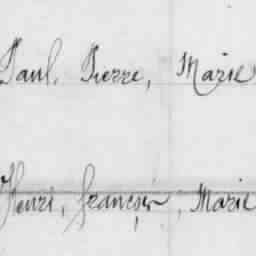 Paul, Pierre, Marie
Henri, françois, Marie